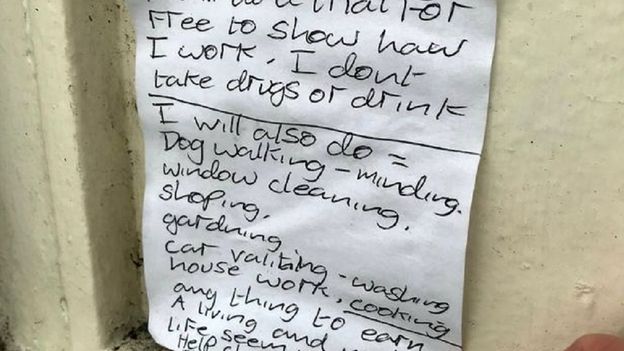 a trial for
Free to show haw
I work. I dont
take drugs or drink
I will also do =
Dog walking - minding.
window cleaning.
shoping.
gardning
car valiting - washing
house work, cooking
any thing to earn
A living and
Life seem
Help